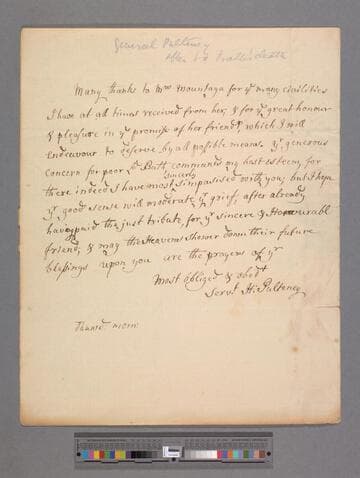 General Pulteney
after Ld Bath's death
Many thanks to Mrs Mountagu for yr many civilities
I have at all times received from her, & for ye great honour
& pleasure in ye promise of her friendp which I will
endeavour to deserve by all possible means. Yr generous
concern for poor Ld Bath commands my best esteem, for
sincerly
there indeed I have most simpasised with you, but I hope
yr good sense will moderate yr grief, after already
having paid the just tribute, for yr sincere & Honourable
friend, & may the Heavens shower down their future
blessings upon you are the prayers of yr
Most obliged & obedt
Servt H: Pulteney
morn